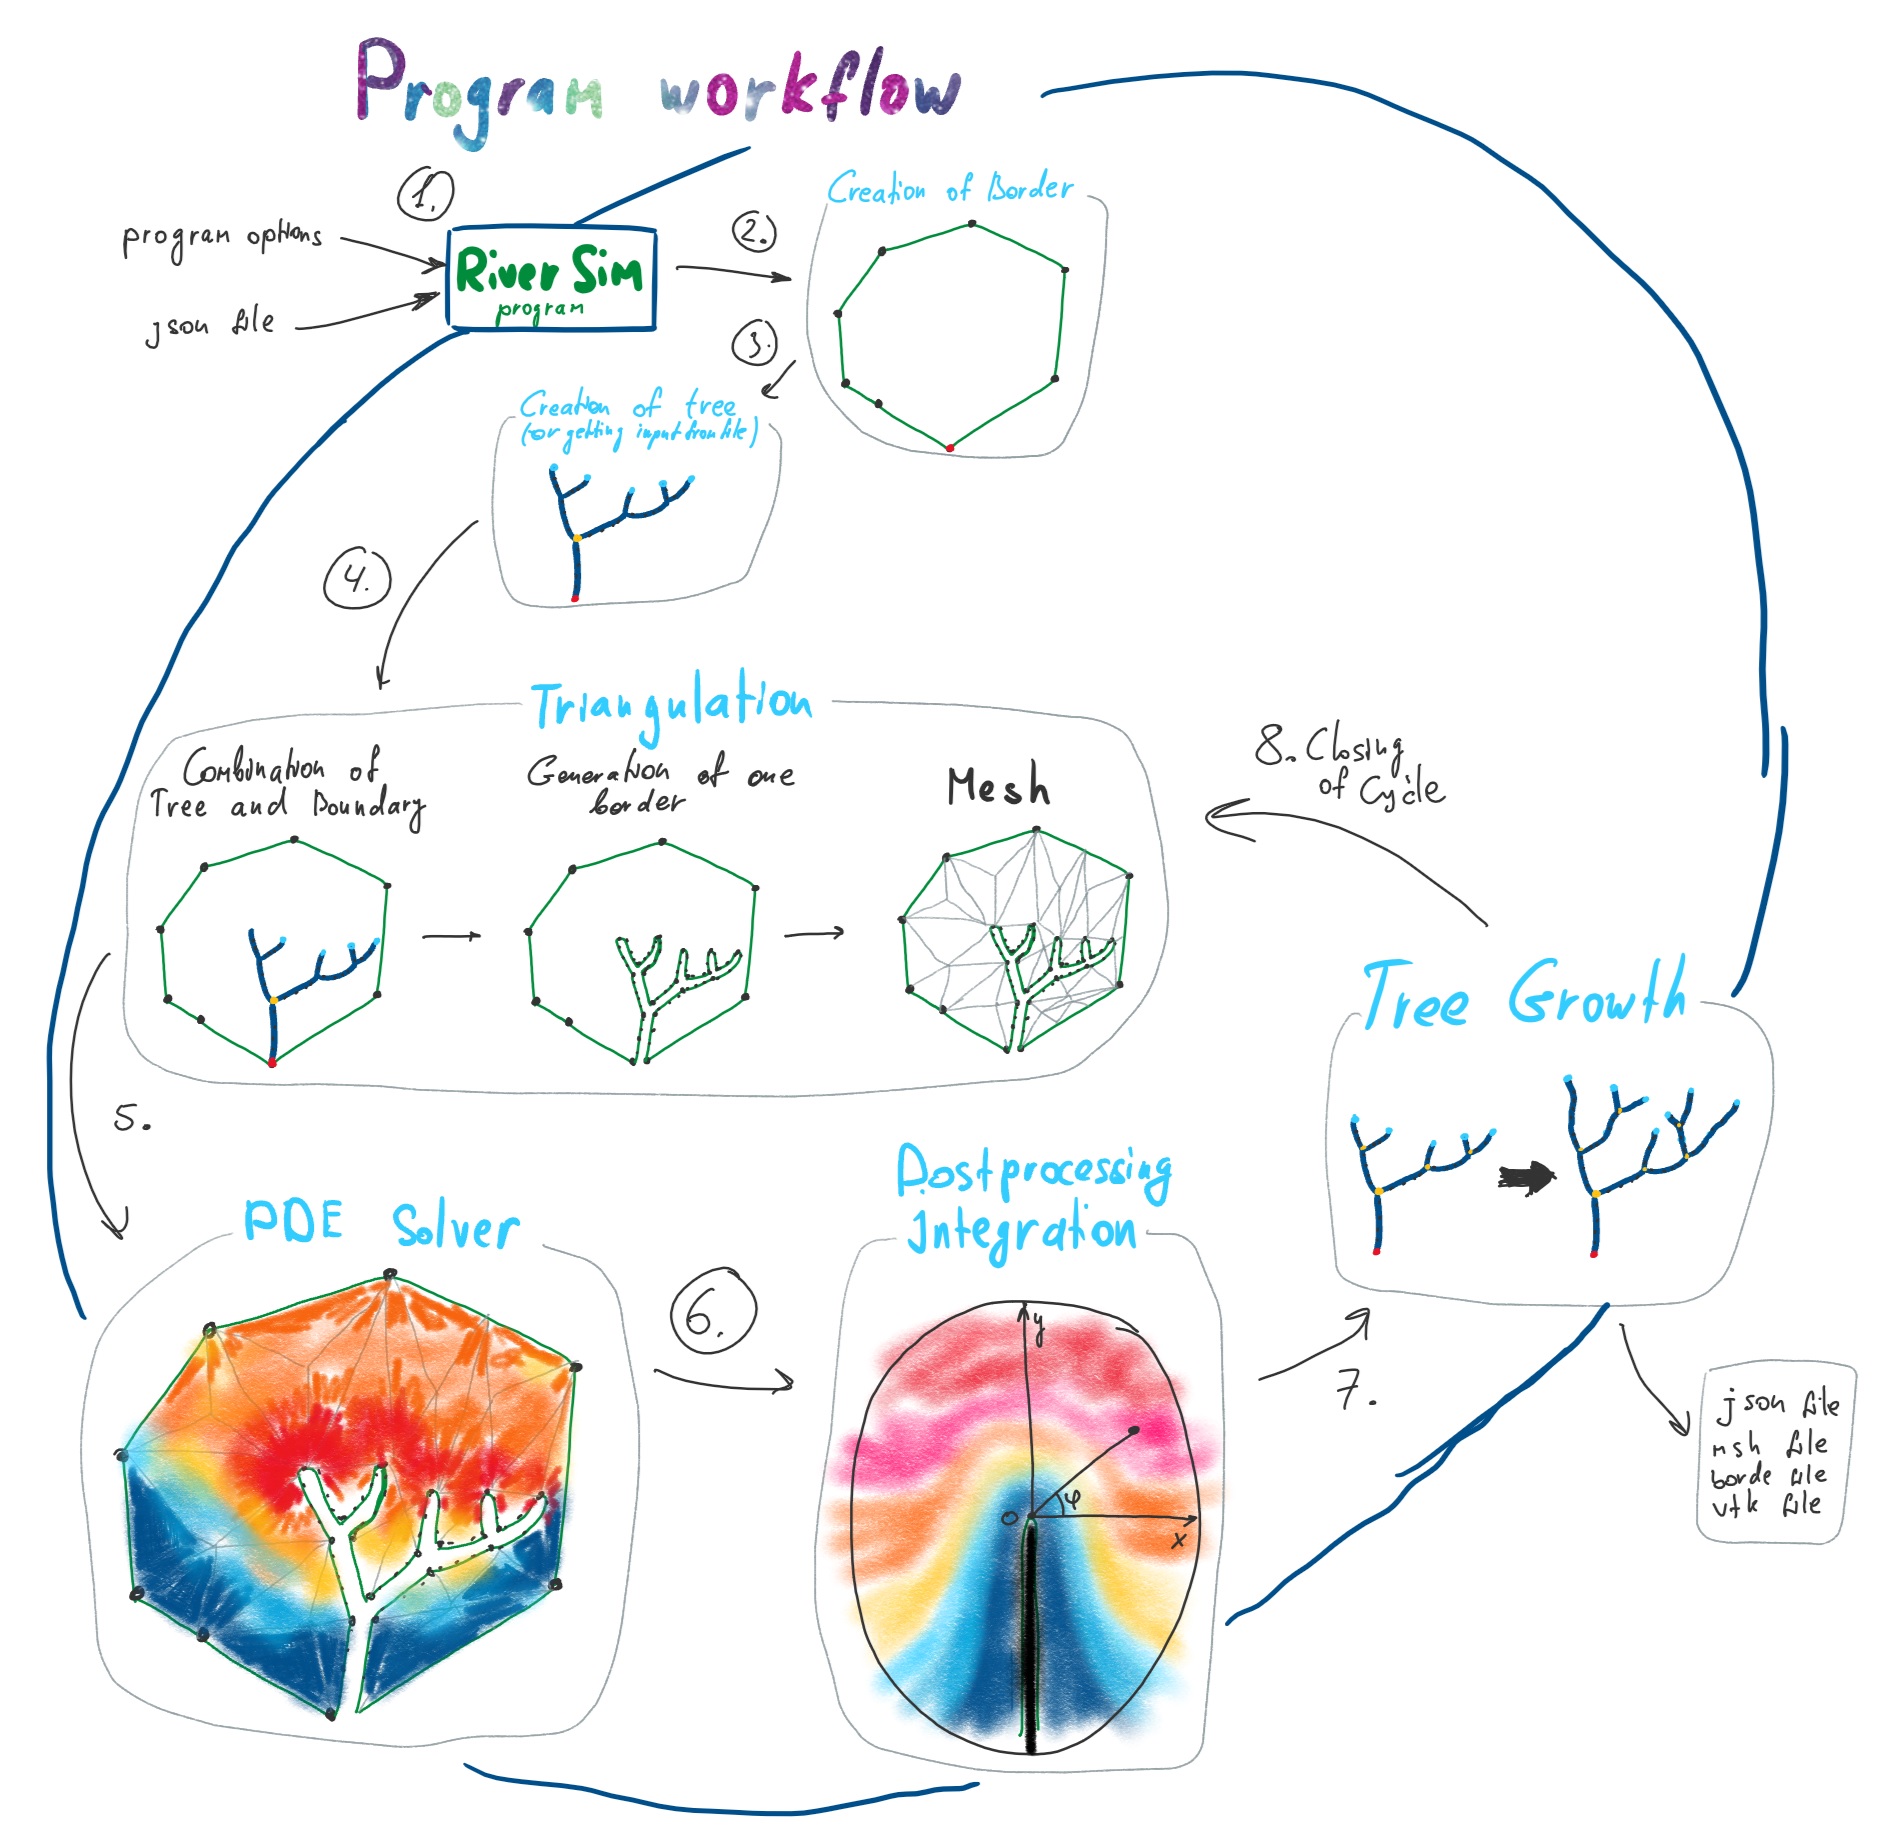 Program workflow
1.
program options
json file
River Sim
program
2.
Creation of Border
3.
Creation of tree
(or getting input from file)
4.
Triangulation
Combination of
Tree and Boundary
Generation of one
border
Mesh
8. Closing
of Cycle
5.
Tree Growth
PDE Solver
6.
Postprocessing
Integration
y
φ
O
x
7.
json file
msh file
borde file
vtk file